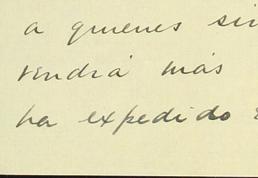 a quienes
vendrá más
ha expedido